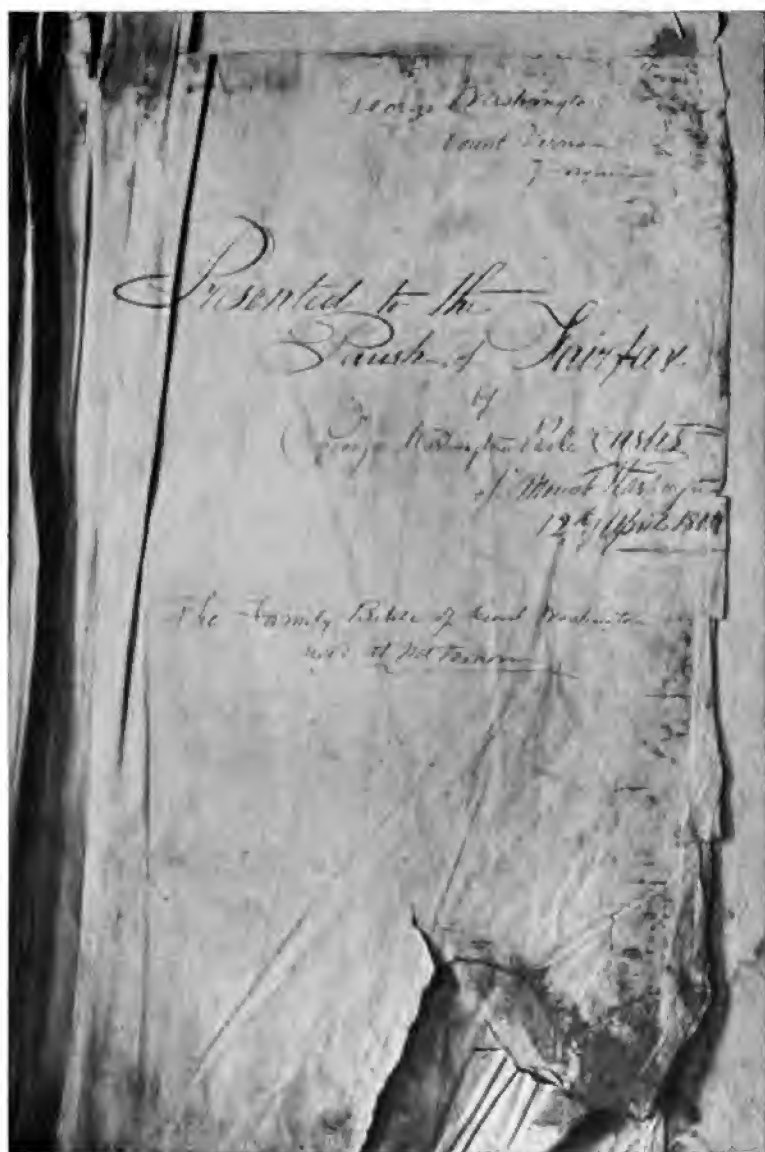 George Washington
Mount Vernon
Virginia
Presented to the
Parish of Fairfax
by
George Washington Parke Custis
of Mount Washington
12th April 1804
The Family Bible of Genl Washington
used at Mt Vernon